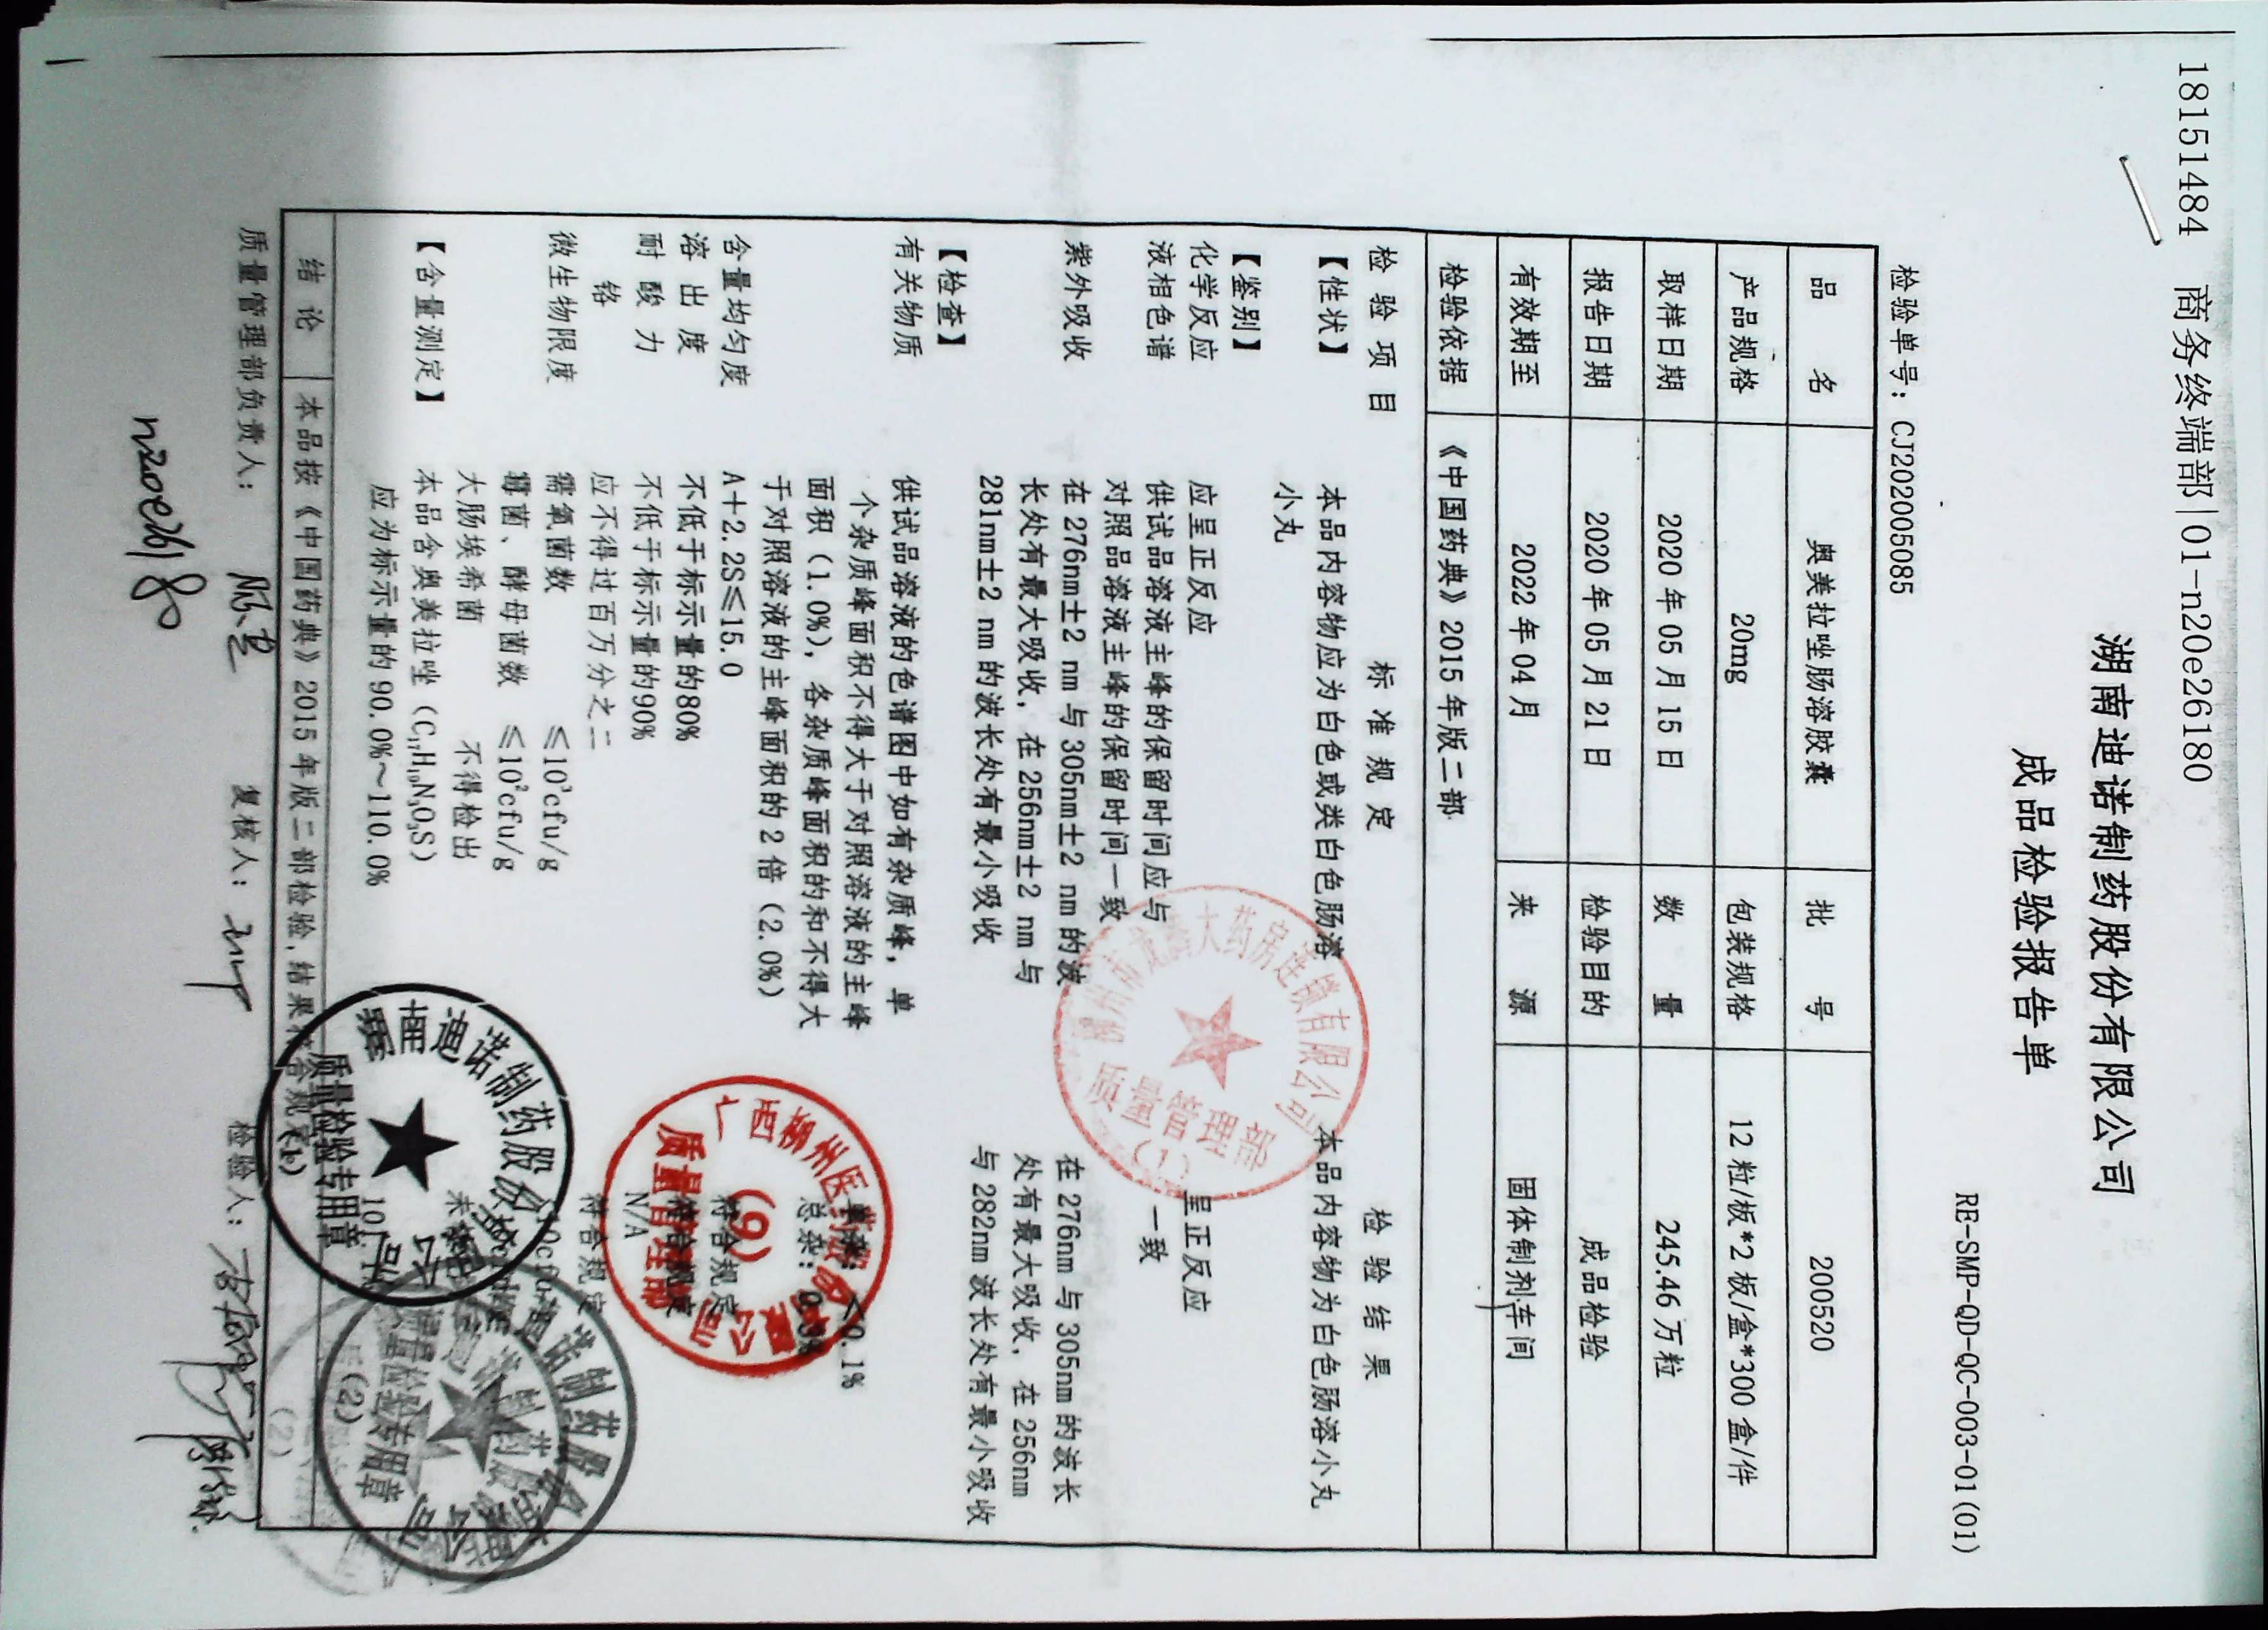 18151484 商务终端部|01-n20e26180
湖南迪诺制药股份有限公司
成品检验报告单
RE-SMP-QD-QC-003-01(01)
检验单号：CJ202005085
品 名 奥美拉唑肠溶胶囊 批 号 200520
产品规格 20mg 包装规格 12粒/板*2板/盒*300盒/件
取样日期 2020年05月15日 数 量 245.46万粒
报告日期 2020年05月21日 检验目的 成品检验
有效期至 2022年04月 来 源 固体制剂车间
检验依据 《中国药典》2015年版二部
检验项目 标准规定 检验结果
【性状】 本品内容物应为白色或类白色肠溶 本品内容物为白色肠溶小丸
小丸
【鉴别】
化学反应 应呈正反应 呈正反应
液相色谱 供试品溶液主峰的保留时间应与 一致
对照品溶液主峰的保留时间一致
紫外吸收 在276nm±2 nm与305nm±2 nm的波 在276nm与305nm的波长
长处有最大吸收，在256nm±2 nm与 处有最大吸收，在256nm
281nm±2 nm的波长处有最小吸收 与282nm波长处有最小吸收
【检查】
有关物质 供试品溶液的色谱图中如有杂质峰，单
个杂质峰面积不得大于对照溶液的主峰 0.1%
面积（1.0%），各杂质峰面积的和不得大 总杂：
于对照溶液的主峰面积的2倍（2.0%）
含量均匀度 A＋2.2S≤15.0 符合规定
溶出度 不低于标示量的80% 符合规定
耐酸力 不低于标示量的90% N/A
铬 应不得过百万分之二 符合规定
微生物限度 需氧菌数 ≤10³cfu/g
霉菌、酵母菌数 ≤10²cfu/g
大肠埃希菌 不得检出
【含量测定】 本品含奥美拉唑（C₁₇H₁₉N₃O₃S）
应为标示量的90.0%～110.0%
结 论 本品按《中国药典》2015年版二部检验，结果符合规定
质量管理部负责人： 复核人： 检验人：
n20e26180
大药房连锁有限公司
质量管理部
（1）
广西柳州医药股份有限公司
(9)
质量管理部
湖南迪诺制药股份有限公司
质量检验专用章
(1)
迪诺制药股份
质量检验专用章
(2)
(2)